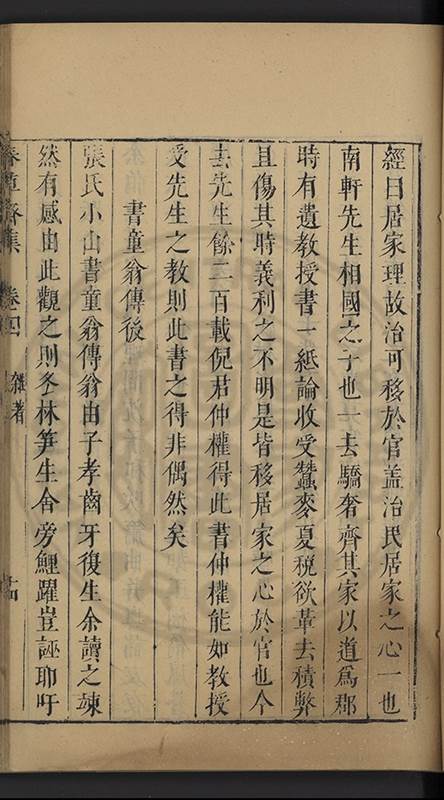 經曰居家理故治可移於官盖治民居家之心一也
南軒先生相國之子也一去驕奢齊其家以道爲郡
時有遺教授書一紙論收受蠶麥夏税欲革去積弊
且傷其時義利之不明是皆移居家之心於官也今
去先生餘二百載倪君仲權得此書仲權能如教授
受先生之教則此書之得非偶然矣
書童翁傳後
張氏小山書童翁傳翁由子孝齒牙復生余讀之竦
然有感由此觀之則冬林笋生舍旁鯉躍豈誣耶吁
齋集 卷四 雜著